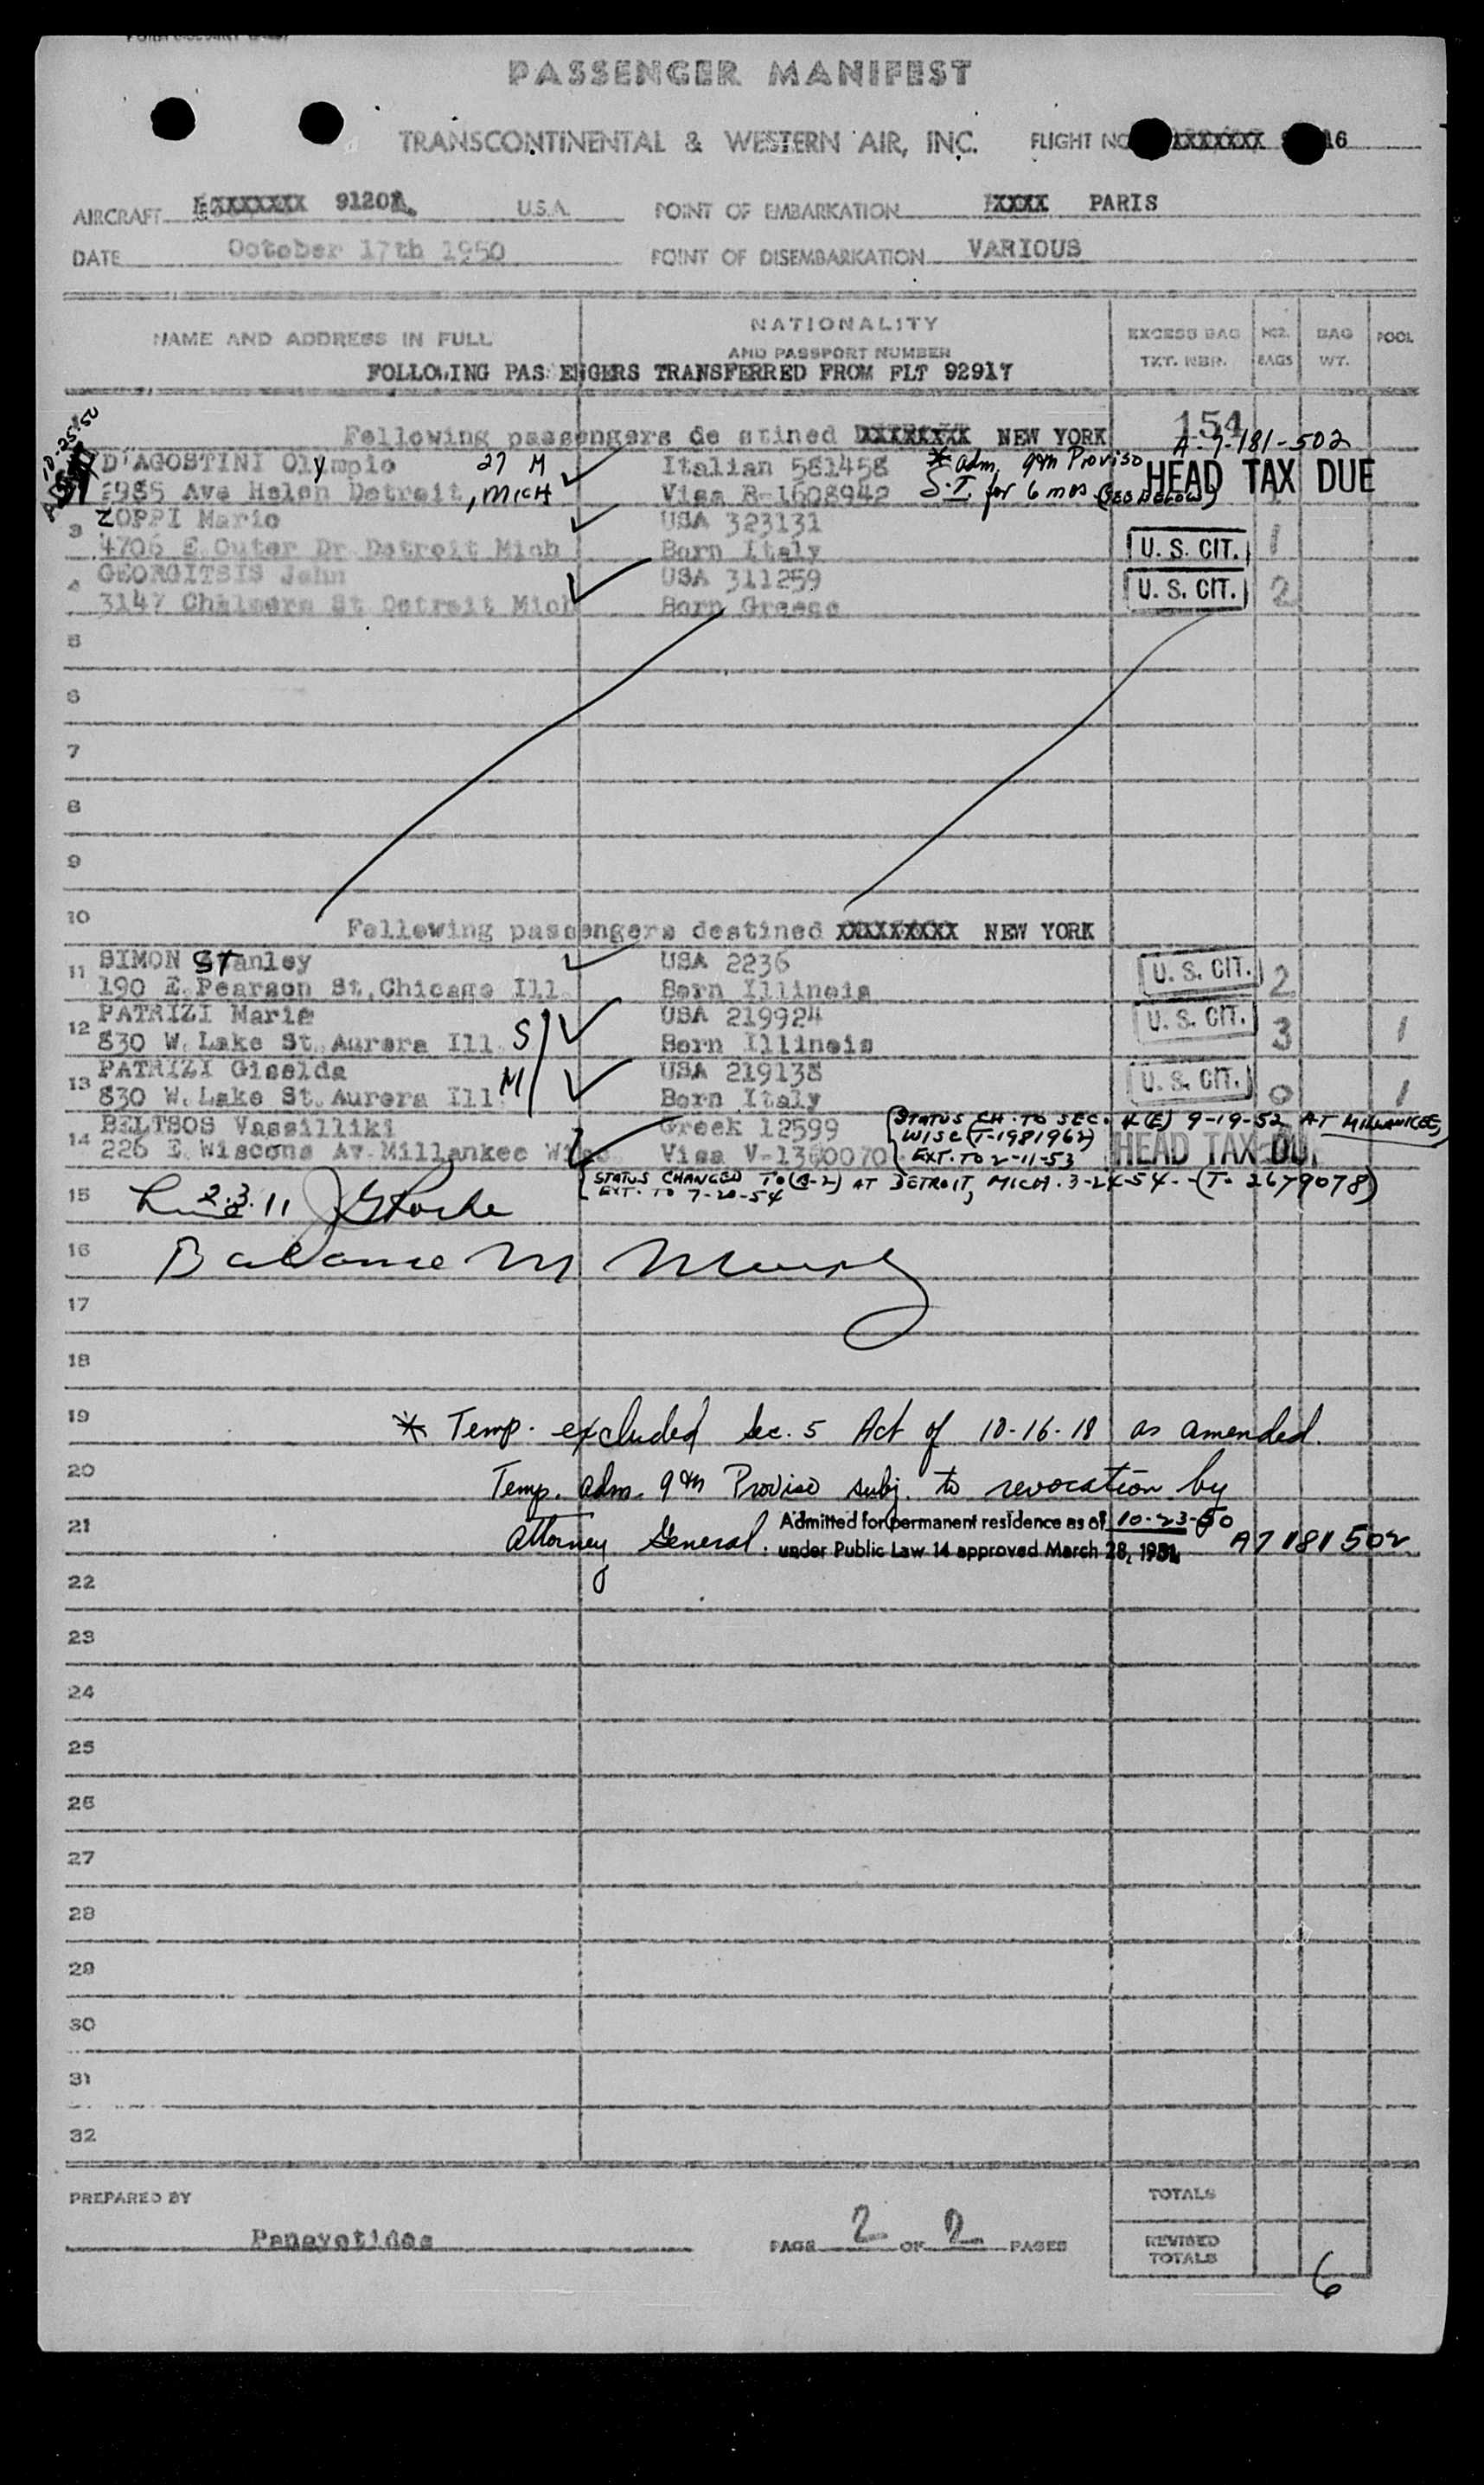 PASSENGER MANIFEST
TRANSCONTINENTAL & WESTERN AIR, INC. FLIGHT NO XXXXXXX 16
AIRCRAFT XXXXXXX 9120 U.S.A. POINT OF EMBARKATION XXXX PARIS
DATE October 17th 1950 POINT OF DISEMBARKATION VARIOUS
NAME AND ADDRESS IN FULL NATIONALITY AND PASSPORT NUMBER EXCESS BAG TKT. NBR. NO. BAGS BAG WT. POOL
FOLLOWING PASSENGERS TRANSFERRED FROM FLT 92917
154
Following passengers de stined XXXXXXXX NEW YORK A-7-181-502
10-25-50
D'AGOSTINI Olympio 27 M Italian 581458 * adm. 9th Proviso HEAD TAX DUE
2985 Ave Helen Detroit, MICH Visa R-1608942 S.I. for 6 mos (SEE BELOW)
3 ZOPPI Mario USA 323131
4706 E Outer Dr Detroit Mich Born Italy U. S. CIT. 1
4 GEORGITSIS John USA 311259
3147 Chalmers St Detroit Mich Born Greece U. S. CIT. 2
5
6
7
8
9
10 Following passengers destined XXXXXXXXX NEW YORK
11 SIMON STanley USA 2236 U. S. CIT. 2
190 E. Pearson St, Chicago Ill Born Illinois
12 PATRIZI Marie USA 219924 U. S. CIT. 3 1
830 W. Lake St. Aurora Ill S Born Illinois
13 PATRIZI Giselda USA 219138 U. S. CIT. 0 1
830 W. Lake St. Aurora Ill M Born Italy
14 BELTSOS Vassilliki Greek 12599 (STATUS CH. TO SEC. 4(E) 9-19-52 AT MILWAUKEE,
226 E Wiscons Av Millankee Wisc Visa V-1360070 WISC (T-1981962) HEAD TAX DUE
EXT. TO 2-11-53
STATUS CHANGED TO (B-2) AT DETROIT, MICH. 3-24-54 - (T-2679078)
EXT. TO 7-20-54
15 2.3.11
16 Balance M
17
18
19 * Temp. excluded Sec. 5 Act of 10-16-18 as amended.
20 Temp. adm. 9th Proviso subj. to revocation by
21 Attorney General. Admitted for permanent residence as of 10-23-50
under Public Law 14 approved March 28, 1951. A7 181 502
22
23
24
25
26
27
28
29
30
31
32
PREPARED BY TOTALS
Panayotidas PAGE 2 OF 2 PAGES REVISED TOTALS 6